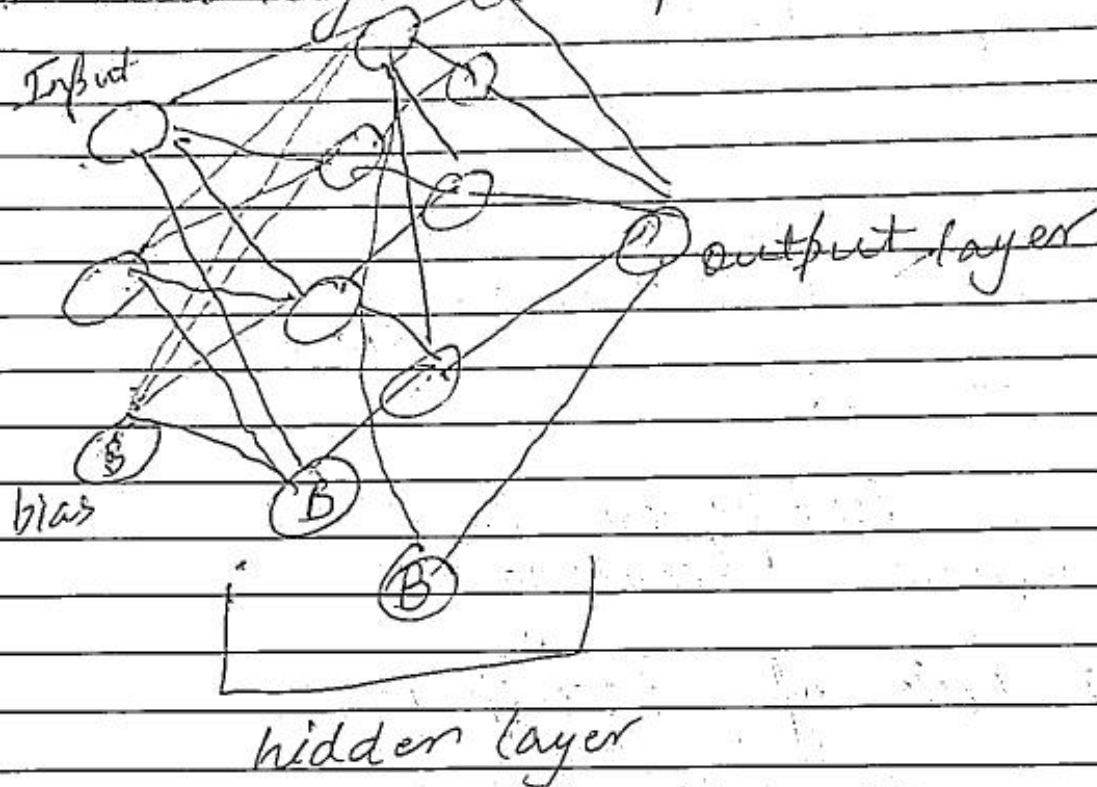 Input
output layer
B
bias
B
B
hidden layer